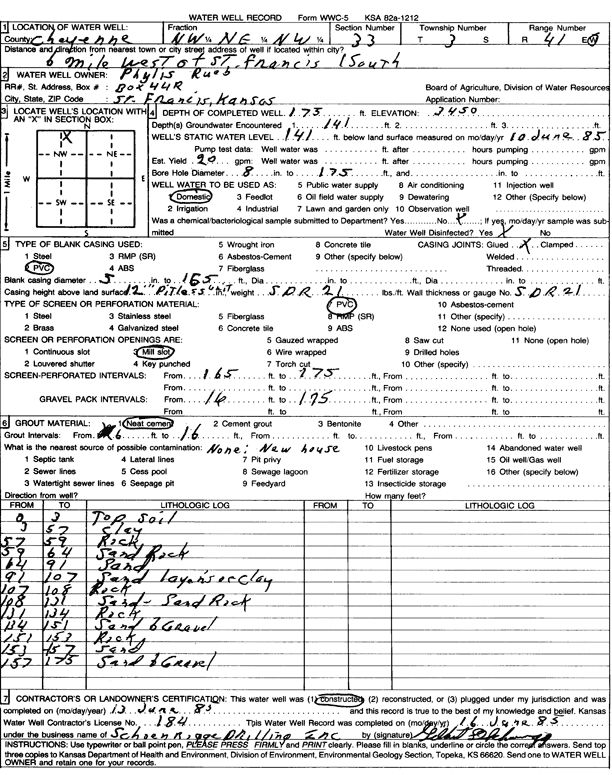 WATER WELL RECORD Form WWC-5 KSA 82a-1212
1 LOCATION OF WATER WELL: Fraction Section Number Township Number Range Number
County: Cheyenne NW ¼ NE ¼ NW ¼ 33 T 3 S R 41 E(W)
Distance and direction from nearest town or city street address of well if located within city?
6 mile west of ST. Francis 1 South
2 WATER WELL OWNER: Phylis Rueb
RR#, St. Address, Box # : Box 44R Board of Agriculture, Division of Water Resources
City, State, ZIP Code : ST. Francis, Kansas Application Number:
3 LOCATE WELL'S LOCATION WITH AN "X" IN SECTION BOX:
N
X
NW NE
W E
SW SE
S
1 Mile
4 DEPTH OF COMPLETED WELL 175 ft. ELEVATION: 3450
Depth(s) Groundwater Encountered 1. 141 ft. 2. ft. 3. ft.
WELL'S STATIC WATER LEVEL 141 ft. below land surface measured on mo/day/yr 10 June 85
Pump test data: Well water was ft. after hours pumping gpm
Est. Yield 20 gpm: Well water was ft. after hours pumping gpm
Bore Hole Diameter 8 in. to 175 ft., and in. to ft.
WELL WATER TO BE USED AS: 5 Public water supply 8 Air conditioning 11 Injection well
1 Domestic 3 Feedlot 6 Oil field water supply 9 Dewatering 12 Other (Specify below)
2 Irrigation 4 Industrial 7 Lawn and garden only 10 Observation well
Was a chemical/bacteriological sample submitted to Department? Yes No X ; If yes, mo/day/yr sample was submitted
Water Well Disinfected? Yes X No
5 TYPE OF BLANK CASING USED: 5 Wrought iron 8 Concrete tile CASING JOINTS: Glued X Clamped
1 Steel 3 RMP (SR) 6 Asbestos-Cement 9 Other (specify below) Welded
2 PVC 4 ABS 7 Fiberglass Threaded
Blank casing diameter 5 in. to 165 ft., Dia in. to ft., Dia in. to ft.
Casing height above land surface 12" weight SDR 21 lbs./ft. Wall thickness or gauge No. SDR 21
TYPE OF SCREEN OR PERFORATION MATERIAL: 7 PVC 10 Asbestos-cement
1 Steel 3 Stainless steel 5 Fiberglass 8 RMP (SR) 11 Other (specify)
2 Brass 4 Galvanized steel 6 Concrete tile 9 ABS 12 None used (open hole)
SCREEN OR PERFORATION OPENINGS ARE: 5 Gauzed wrapped 8 Saw cut 11 None (open hole)
1 Continuous slot 3 Mill slot 6 Wire wrapped 9 Drilled holes
2 Louvered shutter 4 Key punched 7 Torch cut 10 Other (specify)
SCREEN-PERFORATED INTERVALS: From 165 ft. to 175 ft., From ft. to ft.
From ft. to ft., From ft. to ft.
GRAVEL PACK INTERVALS: From 16 ft. to 175 ft., From ft. to ft.
From ft. to ft., From ft. to ft.
6 GROUT MATERIAL: 1 Neat cement 2 Cement grout 3 Bentonite 4 Other
Grout Intervals: From 6 ft. to 16 ft., From ft. to ft., From ft. to ft.
What is the nearest source of possible contamination: None; New house 10 Livestock pens 14 Abandoned water well
1 Septic tank 4 Lateral lines 7 Pit privy 11 Fuel storage 15 Oil well/Gas well
2 Sewer lines 5 Cess pool 8 Sewage lagoon 12 Fertilizer storage 16 Other (specify below)
3 Watertight sewer lines 6 Seepage pit 9 Feedyard 13 Insecticide storage
Direction from well? How many feet?
FROM TO LITHOLOGIC LOG FROM TO LITHOLOGIC LOG
0 3 Top Soil
3 57 Clay
57 59 Rock
59 64 Sand Rock
64 91 Sand
91 107 Sand layers or Clay
107 108 Rock
108 131 Sand - Sand Rock
131 134 Rock
134 151 Sand & Gravel
151 153 Rock
153 157 Sand
157 175 Sand & Gravel
7 CONTRACTOR'S OR LANDOWNER'S CERTIFICATION: This water well was (1) constructed, (2) reconstructed, or (3) plugged under my jurisdiction and was
completed on (mo/day/year) 13 June 85 and this record is true to the best of my knowledge and belief. Kansas
Water Well Contractor's License No. 184 This Water Well Record was completed on (mo/day/yr) 16 June 85
under the business name of Drilling Inc by (signature)
INSTRUCTIONS: Use typewriter or ball point pen, PLEASE PRESS FIRMLY and PRINT clearly. Please fill in blanks, underline or circle the correct answers. Send top
three copies to Kansas Department of Health and Environment, Division of Environment, Environmental Geology Section, Topeka, KS 66620. Send one to WATER WELL
OWNER and retain one for your records.